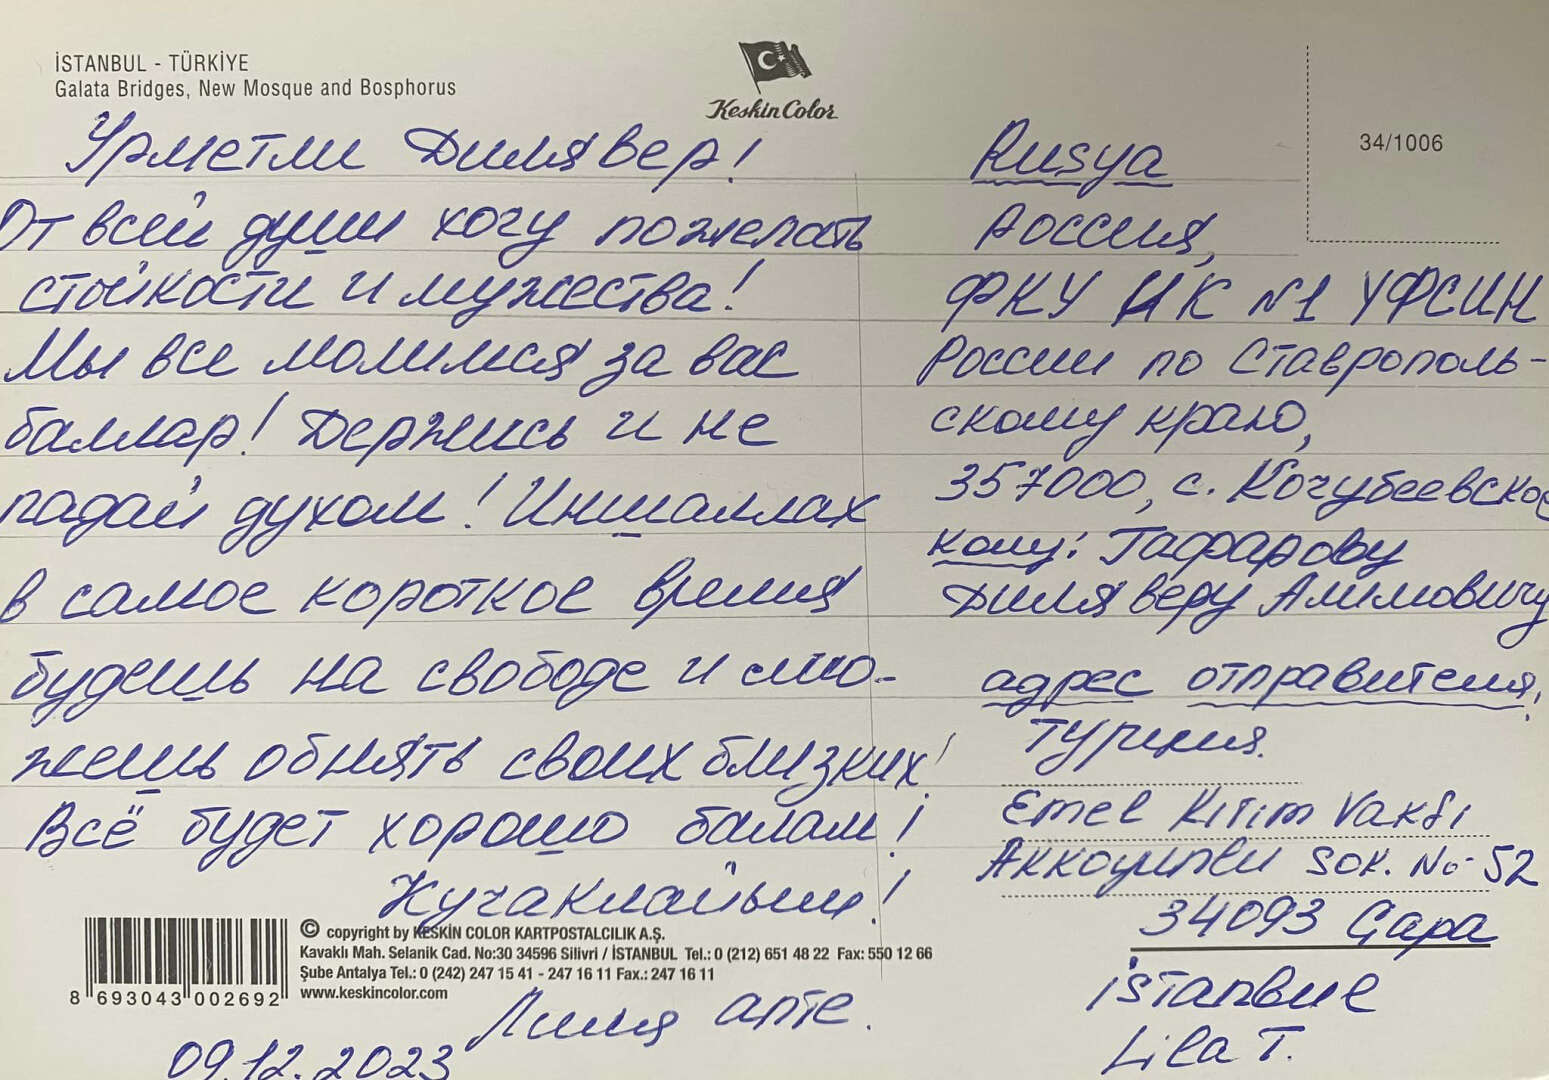 İSTANBUL - TÜRKİYE
Galata Bridges, New Mosque and Bosphorus
Keskin Color
34/1006
Урметли Дилявер!
От всей души хочу пожелать
стойкости и мужества!
Мы все молимся за вас
баллар! Держись и не
падай духом! Иншаллах
в самое короткое время
будешь на свободе и смо-
жешь обнять своих близких!
Всё будет хорошо балам!
Кучаклайым!
Лиля апте.
09.12.2023
Rusya
Россия,
ФКУ ИК №1 УФСИН
России по Ставрополь-
скому краю,
357000, с. Кочубеевское
кому: Гафарову
Диляверу Алимовичу
адрес отправителя,
Турция.
Emel Kırım Vakfı
Akkoyunlu sok. No-52
34093 Çapa
istanbul
Lila T.
© copyright by KESKİN COLOR KARTPOSTALCILIK A.Ş.
Kavaklı Mah. Selanik Cad. No:30 34596 Silivri / İSTANBUL Tel.: 0 (212) 651 48 22 Fax: 550 12 66
Şube Antalya Tel.: 0 (242) 247 15 41 - 247 16 11 Fax.: 247 16 11
www.keskincolor.com
8 693043 002692